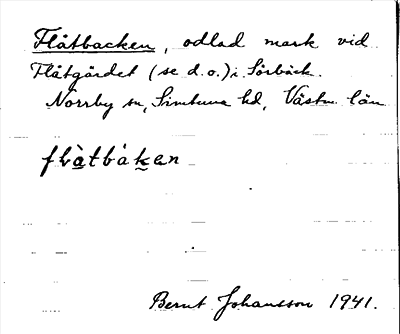 Flåtbacken, odlad mark vid
Flåtgärdet (se d.o.) i Sörbäck.
Norrby sn, Simtuna hd, Västm. län
flòtbàken
Bernt Johansson 1941.